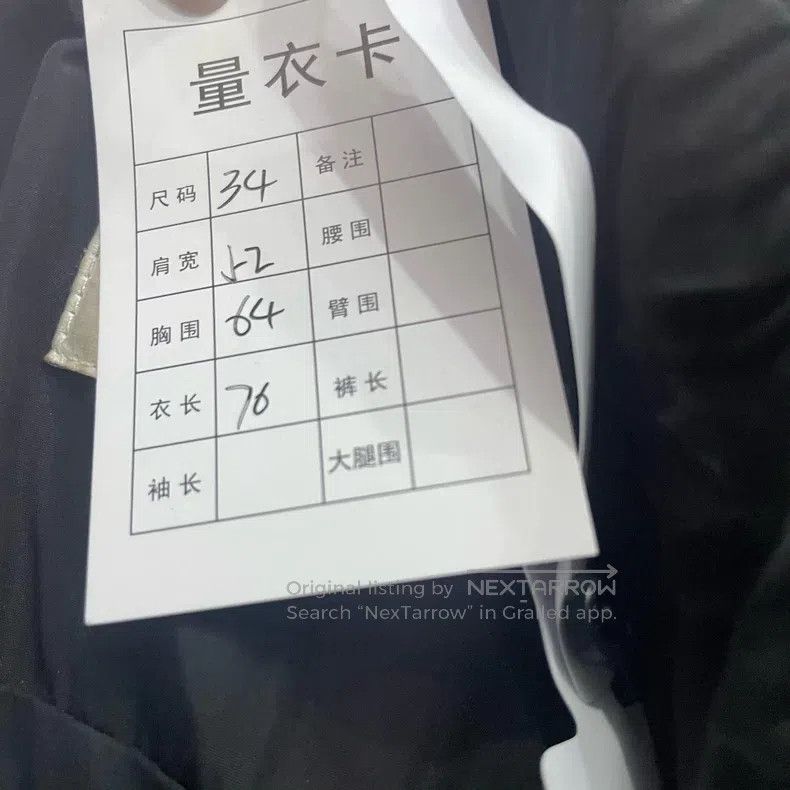 量衣卡
尺码 34 备注
肩宽 52 腰围
胸围 64 臂围
衣长 76 裤长
袖长 大腿围
Original listing by NEXTARROW
Search “NexTarrow” in Grailed app.